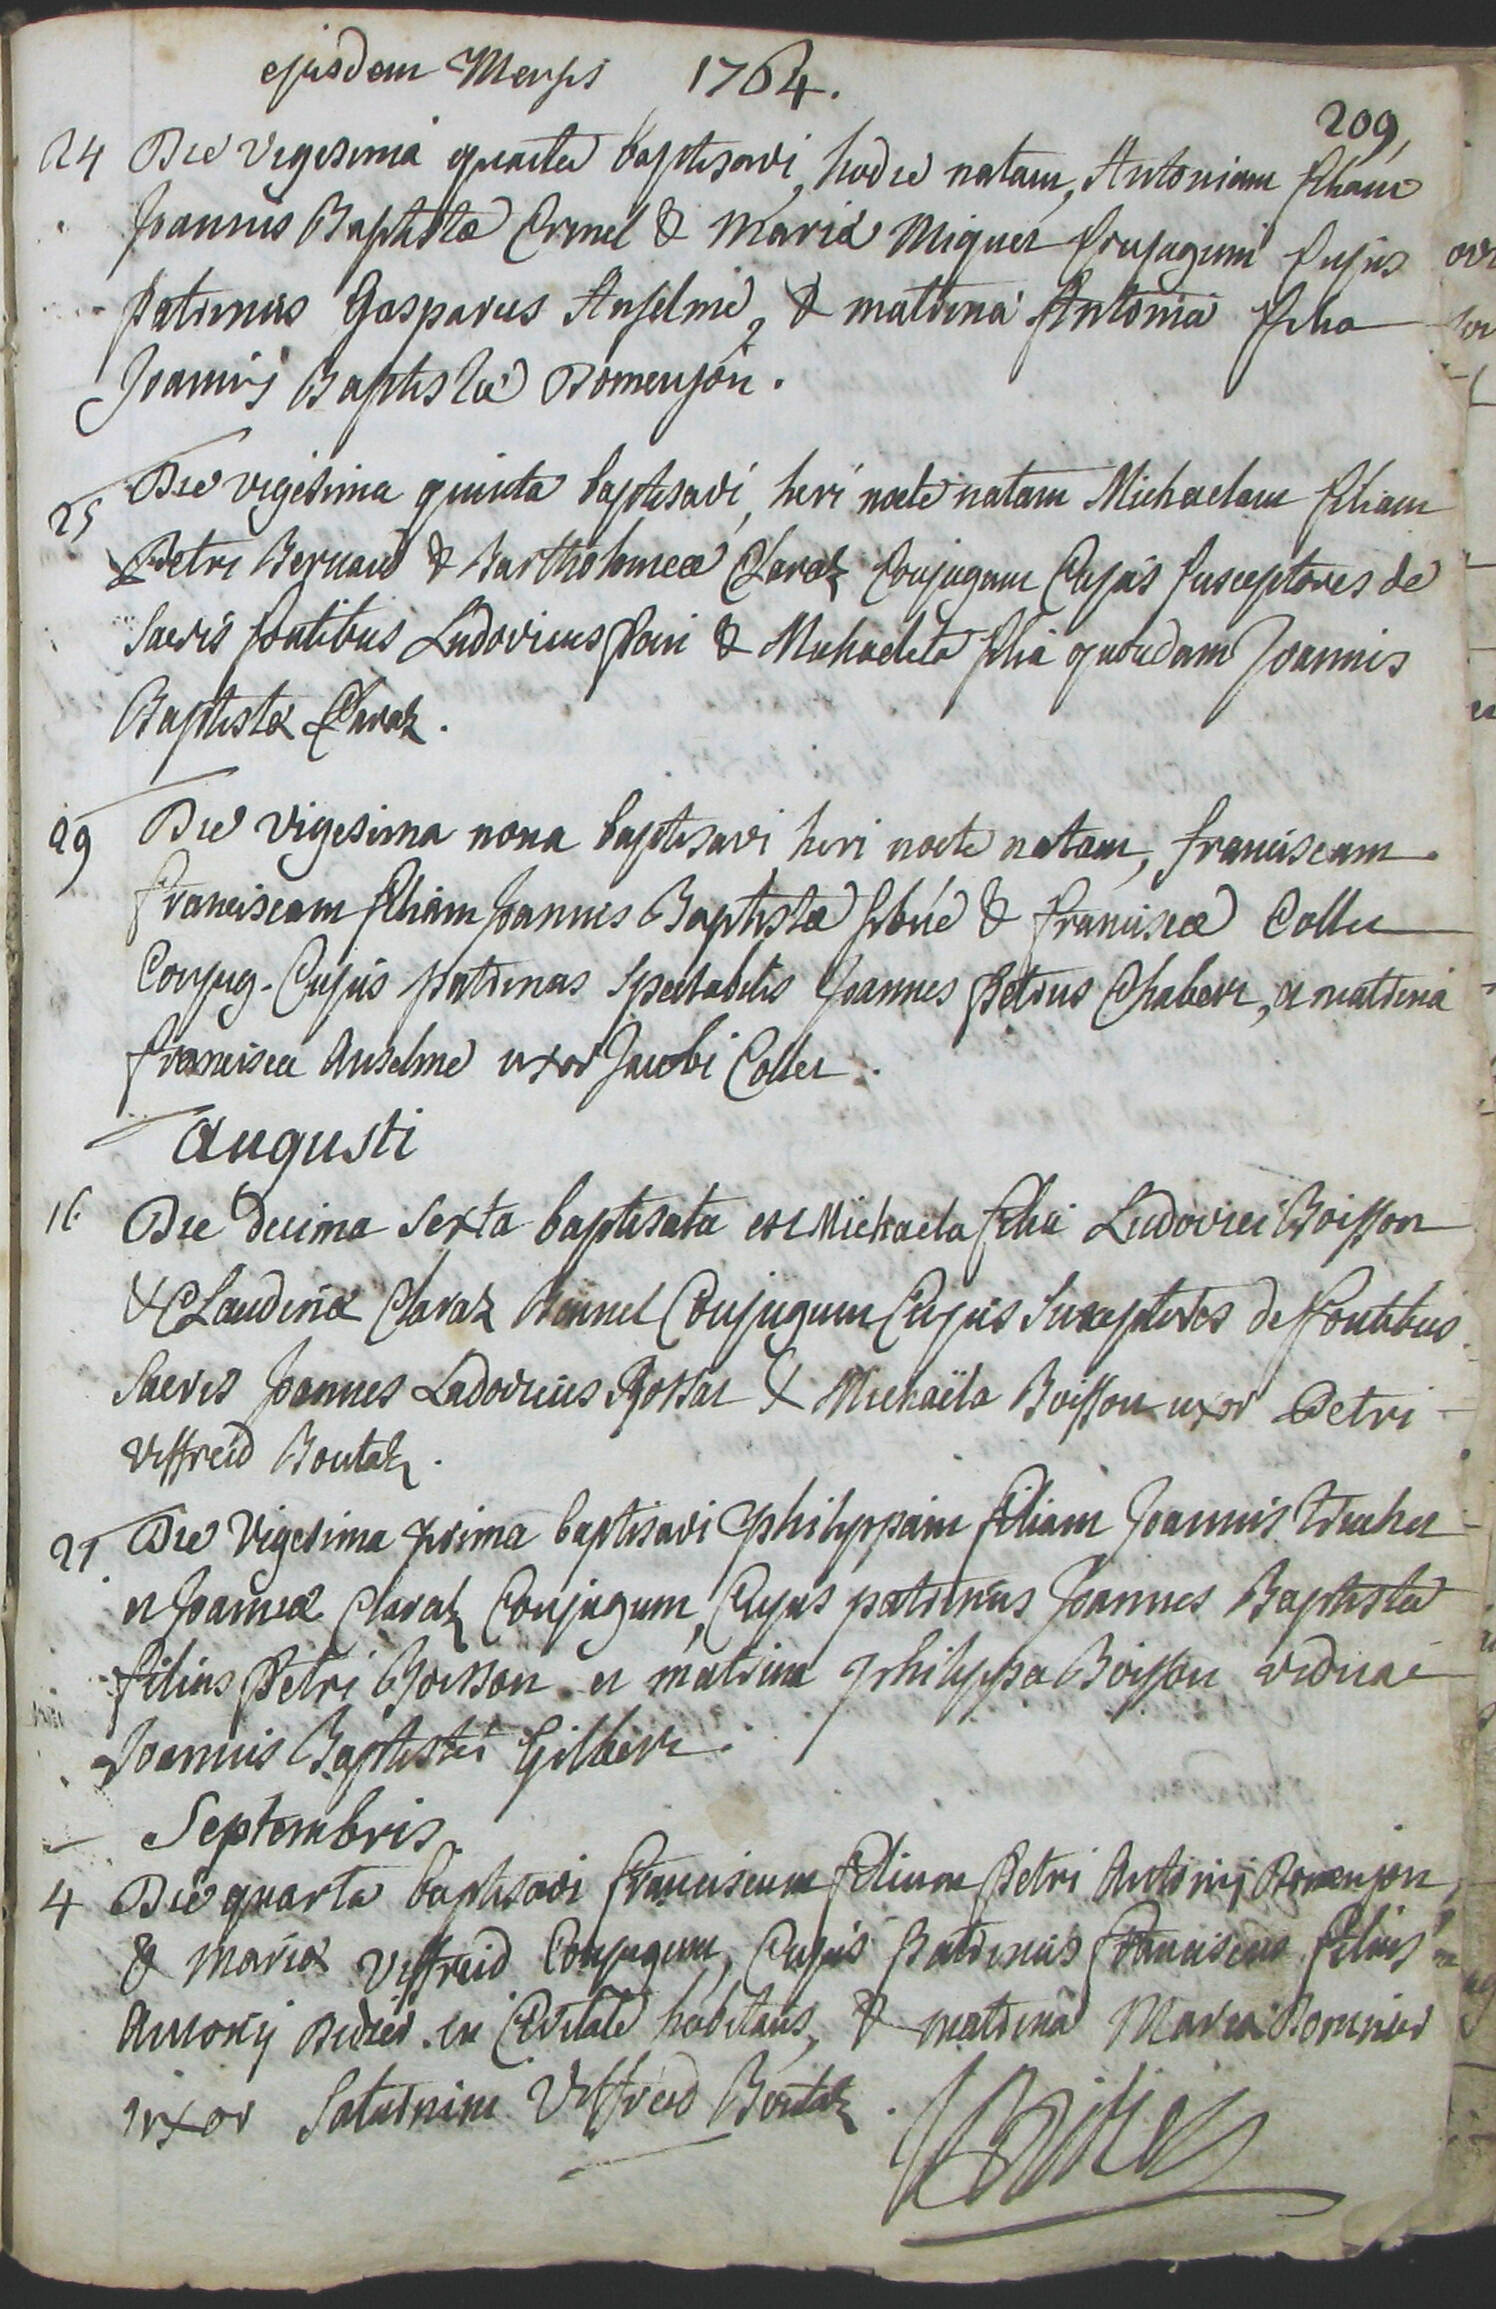 ejusdem Mensis 1764.
209
24 Die vigesima quarta baptisavi, hodie natam, Antoniam filiam
Joannis Baptistæ Ermel & Mariæ Miquet Conjugum Cujus
Patrinus Gasparus Anselme, & matrina Antonia filia
Joannis Baptistæ Romenjon.
25 Die vigesima quinta baptisavi, heri nocte natam Michaelam filiam
Petri Bernard & Bartholomeæ Claraz Conjugum Cujus Susceptores de
Sacris fontibus Ludovicus & Michaela filia quondam Joannis
Baptistæ Claraz.
29 Die vigesima nona baptisavi heri nocte natam, franciscam
Franciscam filiam Joannis Baptistæ & franciscæ Collet
Conjug. Cujus patrinus Spectabilis Joannes Petrus Chabert, & matrina
francisca Anselme uxor Jacobi Collet.
Augusti
16 Die decima Sexta baptisata est Michaela filia Ludovici Boisson
& Claudinæ Claraz Bonnel Conjugum Cujus Susceptores de fontibus
Sacris Joannes Ludovicus Rossat & Michaëla Boisson uxor Petri
Viffreid Boutaz.
21 Die Vigesima prima baptisavi philippam filiam Joannis Truchet
et Joannæ Claraz Conjugum, Cujus patrinus Joannes Baptista
filius Petri Boisson et matrina philippa Boisson vidua
Joannis Baptistæ Gilbert.
Septembris
4 Die quarta baptisavi franciscum filium Petri Antonij Romenjon
& Mariæ Viffreid Conjugum, Cujus Patrinus Franciscus filius
Antonij Didier in Civitate habitans, & matrina Maria
uxor Saturnini Viffreid Boutaz.